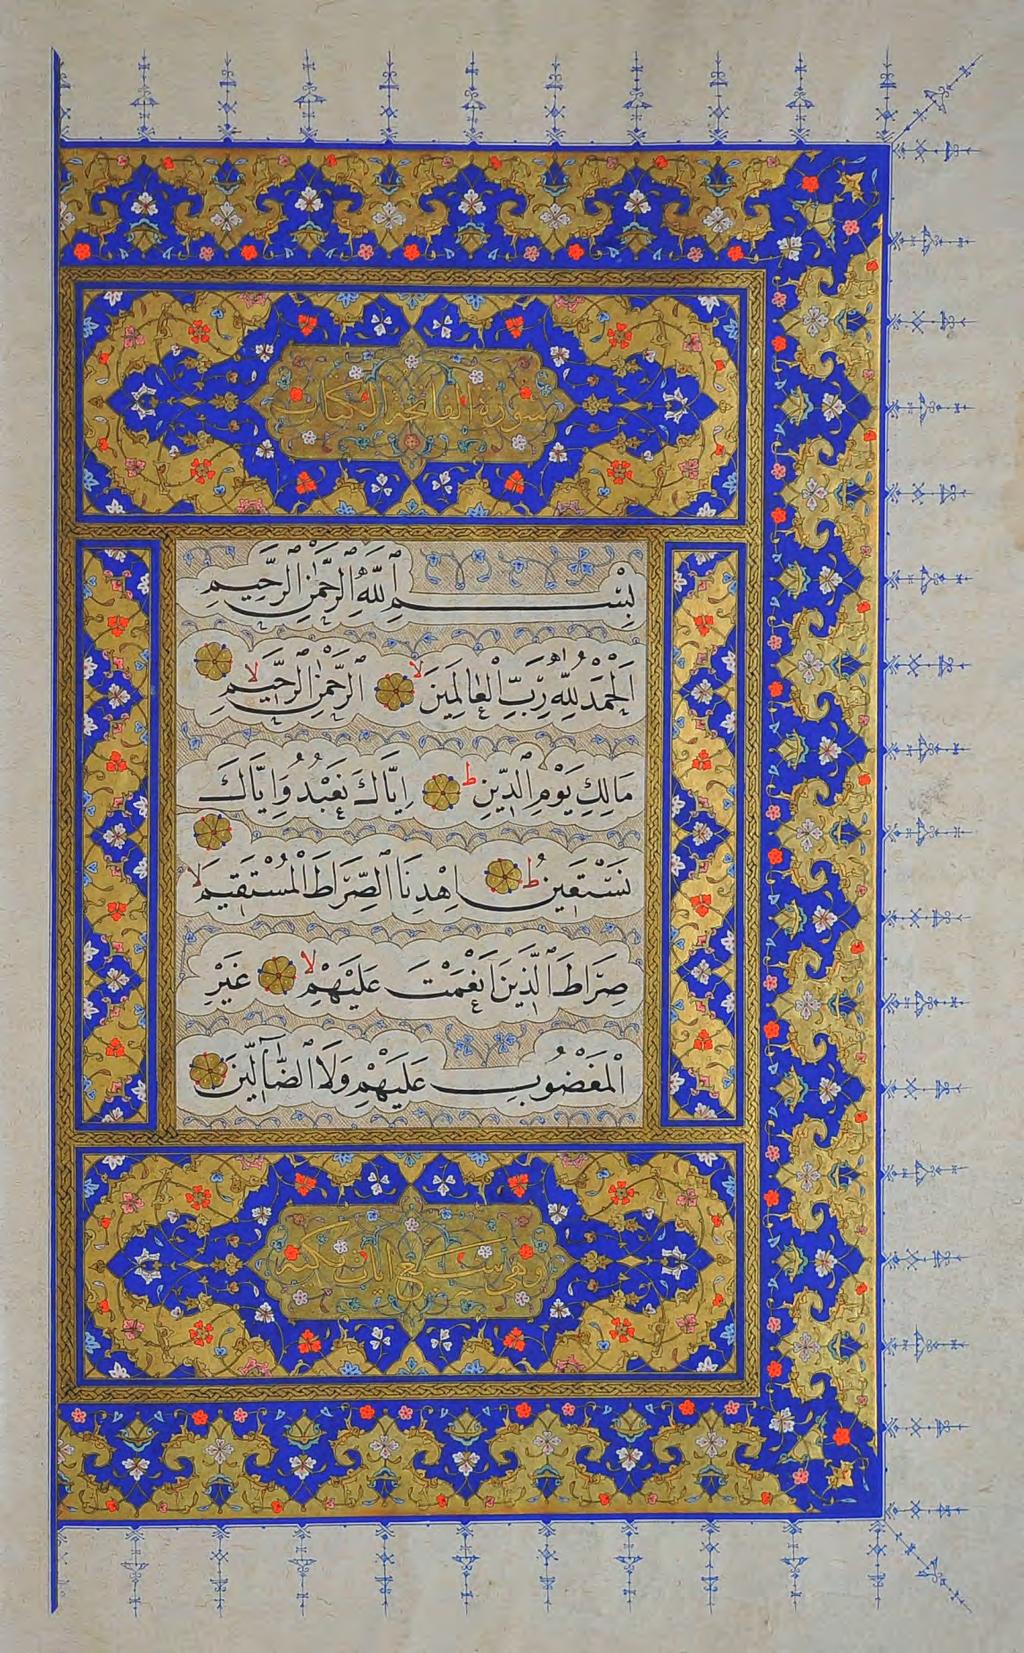 سورة الفاتحة الكتاب
بِسْمِ ٱللّٰهِ ٱلرَّحْمٰنِ ٱلرَّحِيمِ
اَلْحَمْدُ لِلّٰهِ رَبِّ الْعَالَمِينَ لا اَلرَّحْمٰنِ ٱلرَّحِيمِ لا
مَالِكِ يَوْمِ ٱلدِّينِ ط اِيَّاكَ نَعْبُدُ وَاِيَّاكَ
نَسْتَعِينُ ط اِهْدِنَا ٱلصِّرَاطَ الْمُسْتَقِيمَ لا
صِرَاطَ ٱلَّذِينَ اَنْعَمْتَ عَلَيْهِمْ لا غَيْرِ
الْمَغْضُوبِ عَلَيْهِمْ وَلَا ٱلضَّٓالِّينَ
وهي سبع ايات مكية